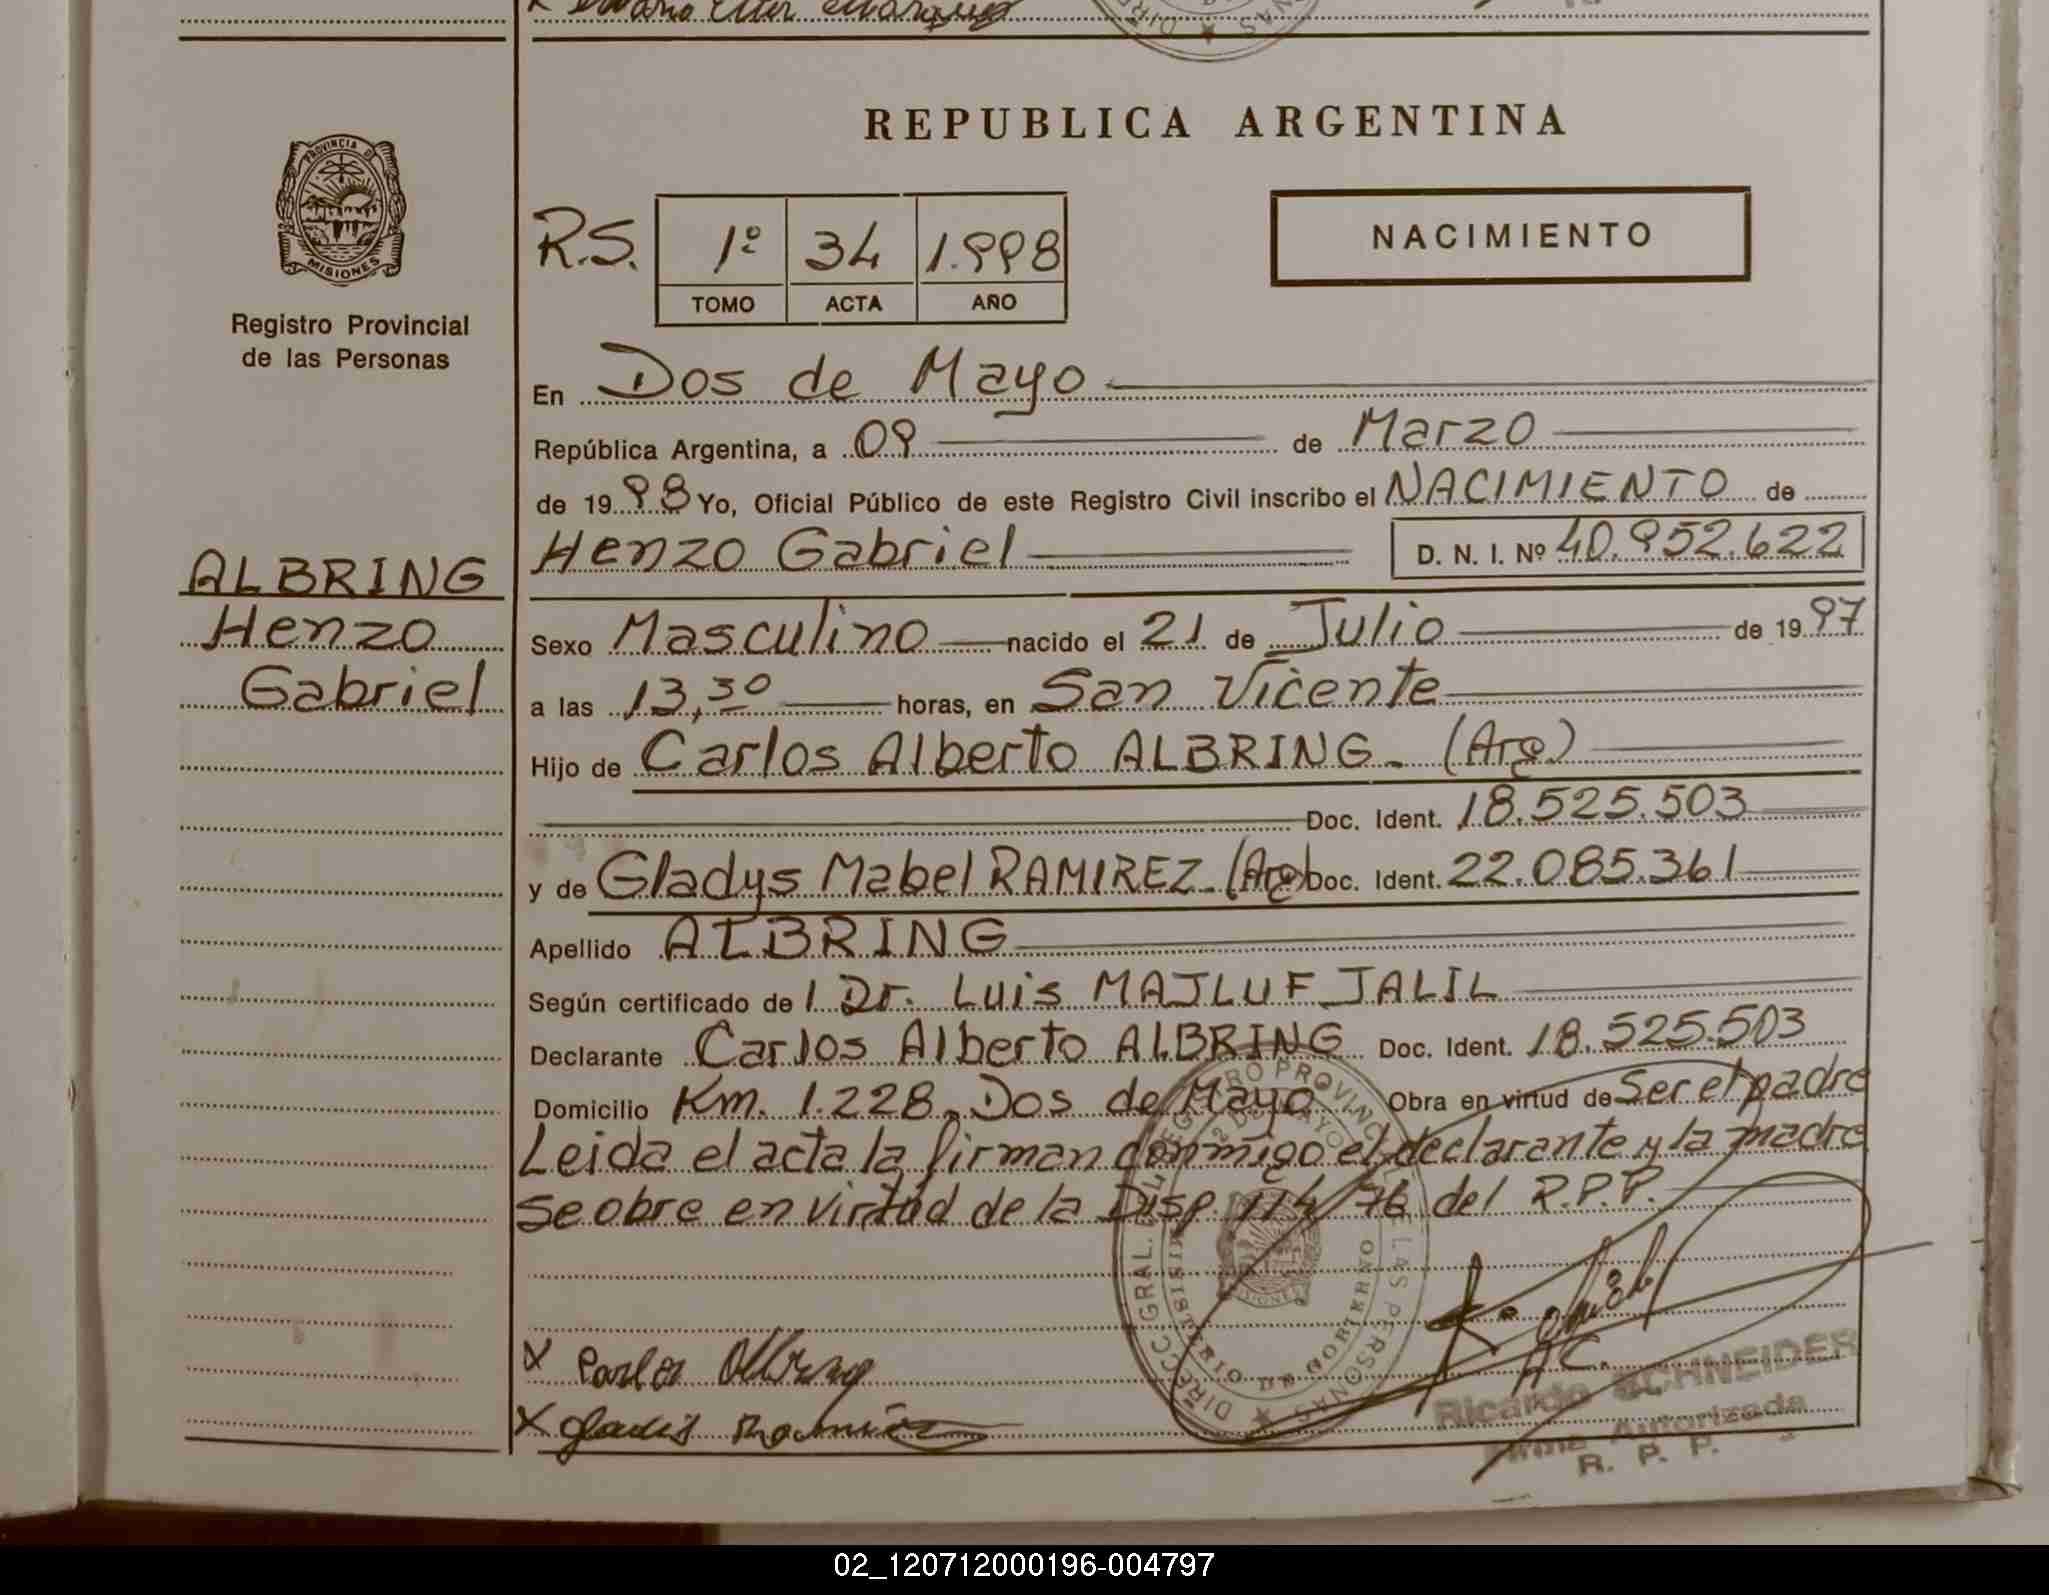 REPUBLICA ARGENTINA
PROVINCIA DE
MISIONES
Registro Provincial
de las Personas
R.S. 1º 34 1.998
TOMO ACTA AÑO
NACIMIENTO
En Dos de Mayo
República Argentina, a 09 de Marzo
de 1998 Yo, Oficial Público de este Registro Civil inscribo el NACIMIENTO de
Henzo Gabriel D. N. I. Nº 40.952.622
ALBRING
Henzo
Gabriel
Sexo Masculino nacido el 21 de Julio de 1997
a las 13,30 horas, en San Vicente
Hijo de Carlos Alberto ALBRING. (Arg)
Doc. Ident. 18.525.503
y de Gladys Mabel RAMIREZ. (Arg) Doc. Ident. 22.085.361
Apellido ALBRING
Según certificado de l Dr. Luis MAJLUF JALIL
Declarante Carlos Alberto ALBRING Doc. Ident. 18.525.503
Domicilio Km. 1.228, Dos de Mayo Obra en virtud de Ser el padre
Leida el acta la firman conmigo el declarante y la madre
se obre en virtud de la Disp. 114/76 del R.P.P.
DIRECC GRAL. DEL REGISTRO PROVINCIAL DE LAS PERSONAS
MINISTERIO DE GOBIERNO
MISIONES
X Carlos Albring
X Gladis Ramirez
Ricardo SCHNEIDER
Firma Autorizada
R. P. P.
02_120712000196-004797